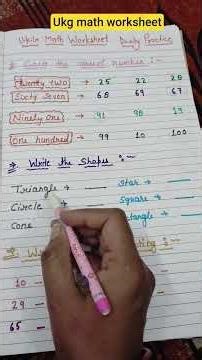 Ukg math worksheet
Math Worksheet Practice
the number :-
Twenty two → 25 22 20
Sixty Seven → 68 69 67
Ninety One → 91 90 19
One hundred → 99 10 100
Write the Shapes :-
Triangle → Star →
Circle → Square →
Cone
10 -
29 -
65 -